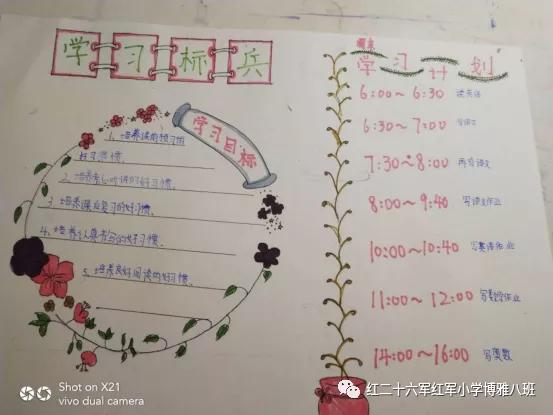 学习标兵
学习目标
1、培养课前预习的
好习惯。
2、培养专心听课的好习惯。
3、培养课后复习的好习惯。
4、培养认真书写的好习惯。
5、培养良好阅读的好习惯。
周末
学习计划
6:00～6:30 读英语
6:30～7:00
7:30～8:00 语文
8:00～9:40 写语文作业
10:00～10:40 写英语作业
11:00～12:00 写数学作业
14:00～16:00 写奥数
Shot on X21
vivo dual camera
红二十六军红军小学博雅八班